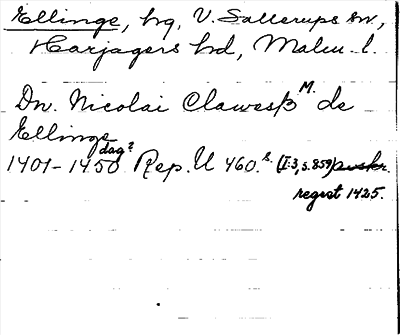 Ellinge, hg, V. Sallerups sn,
Harjagers hd, Malm. l.
Dn. Nicolai Clawesß M. de
Ellinge
1401-1450 dag? Rep. U 460. s. (I:3, s. 859)
regist 1425.